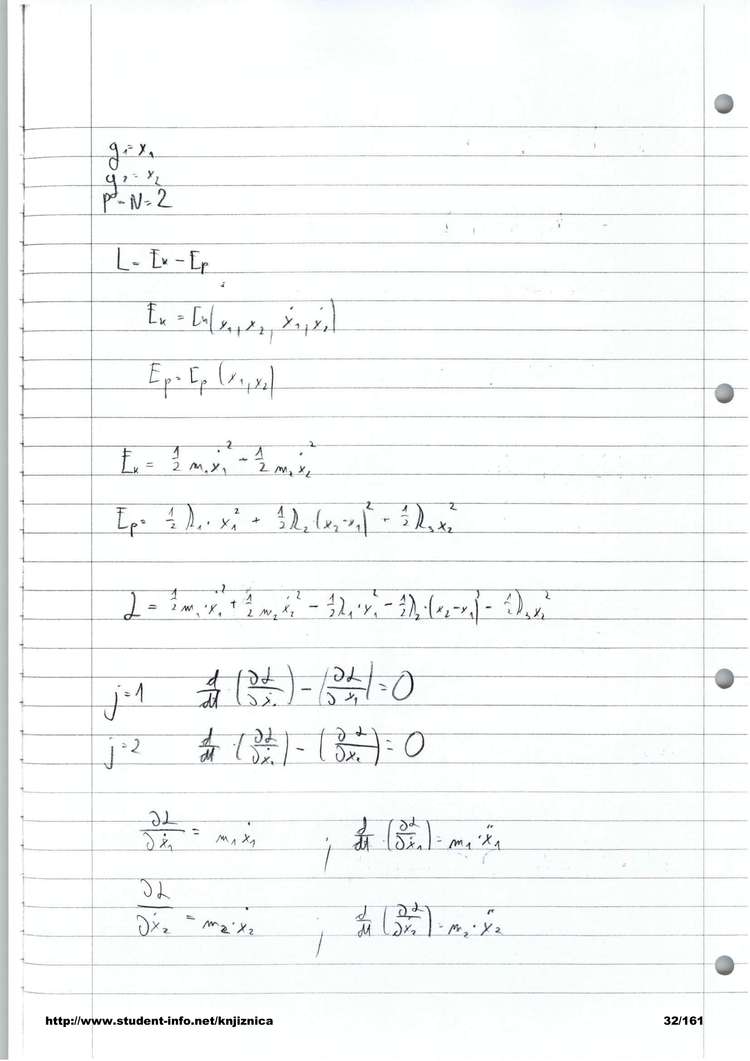 g₁ = x₁
g₂ = x₂
P - N = 2
L = Eₖ - Eₚ
Eₖ = Eₖ(x₁, x₂, ẋ₁, ẋ₂)
Eₚ = Eₚ (x₁, x₂)
Eₖ = 1/2 m₁ẋ₁² - 1/2 m₂ẋ₂²
Eₚ = 1/2 k₁·x₁² + 1/2 k₂·(x₂-x₁)² - 1/2 k₃x₂²
L = 1/2 m₁·ẋ₁² + 1/2 m₂ẋ₂² - 1/2 k₁·x₁² - 1/2 k₂·(x₂-x₁)² - 1/2 k₃x₂²
j=1 d/dt (∂L/∂ẋ₁) - (∂L/∂x₁) = 0
j=2 d/dt·(∂L/∂ẋ₂) - (∂L/∂x₂) = 0
∂L/∂ẋ₁ = m₁ẋ₁ ; d/dt·(∂L/∂ẋ₁) = m₁·ẍ₁
∂L/∂ẋ₂ = m₂·ẋ₂ ; d/dt (∂L/∂ẋ₂) = m₂·ẍ₂
http://www.student-info.net/knjiznica 32/161